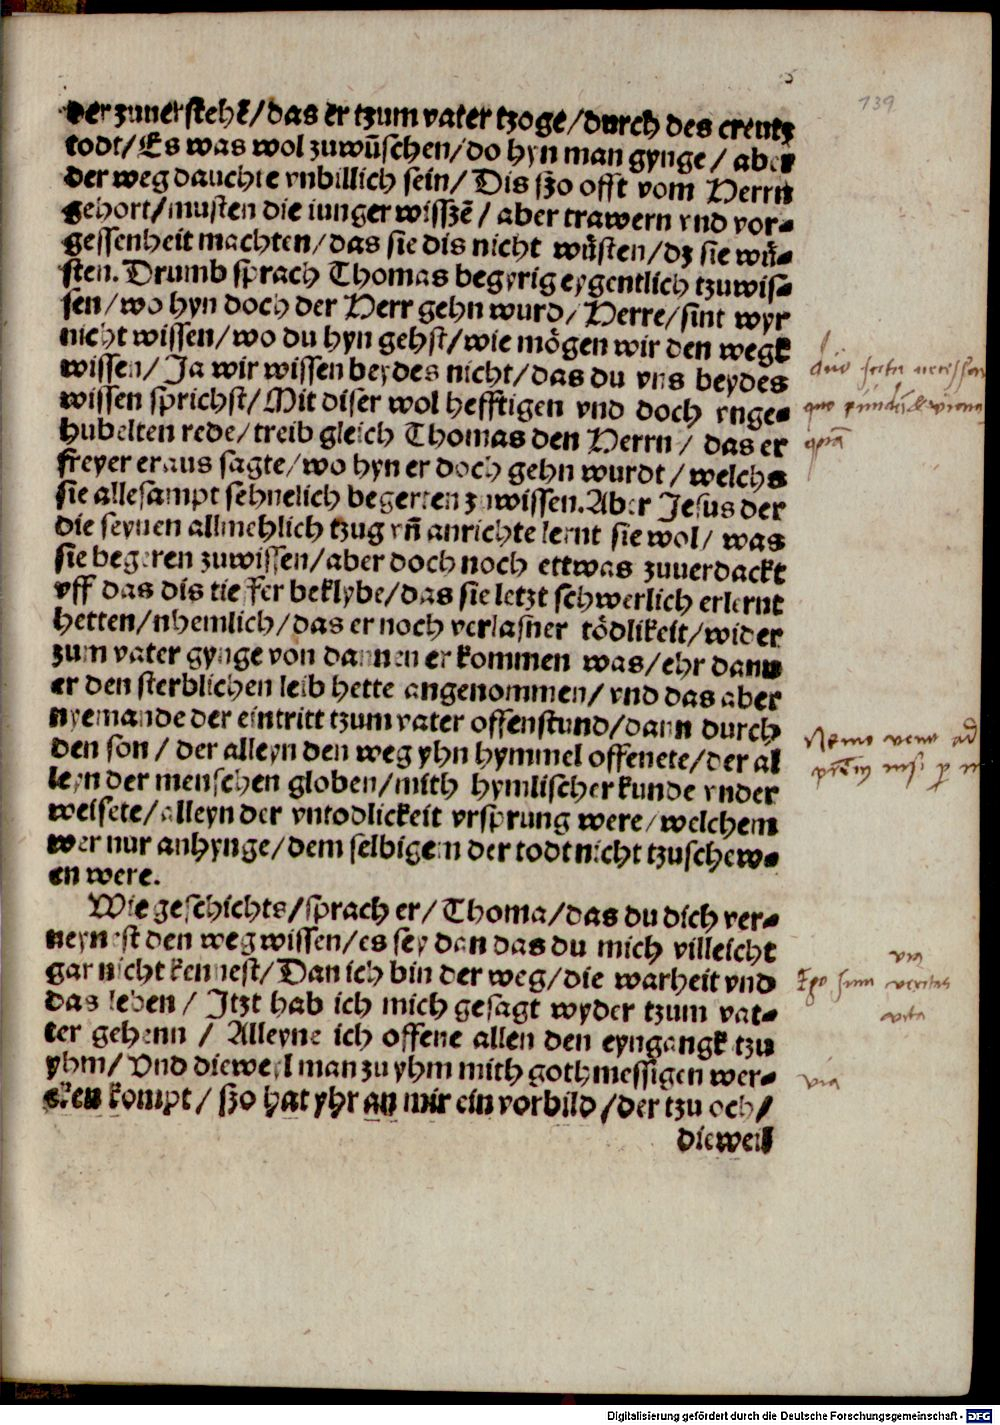 139
der zuuersteht/das er tzum vater tzoge/durch des creutz
todt/Es was wol zuwűschen/do hyn man gynge/ aber
der weg dauchte vnbillich sein/ Dis szo offt vom Herrn
gehort/musten die iunger wisszē/ aber trawern vnd vor-
gessenheit machten/das sie dis nicht wüsten/dz sie wü-
sten. Drumb sprach Thomas begyrig eygentlich tzuwis-
sen/wo hyn doch der Herr gehn wurd/Herre/sint wyr
nicht wissen/wo du hyn gehst/wie mögen wir den wegk
wissen/Ja wir wissen beydes nicht/das du vns beydes
wissen sprichst/Mit diser wol hefftigen vnd doch vnge-
hubelten rede/treib gleich Thomas den Herrn/ das er
freyer eraus sagte/wo hyn er doch gehn wurdt/welchs
sie allesampt sehnelich begerten zuwissen.Aber Jesus der
die seynen allmehlich tzug vñ anrichte lernt sie wol/ was
sie begeren zuwissen/aber doch noch ettwas zuuerdackt
vff das dis tieffer beklybe/das sie letzt schwerlich erlernt
hetten/nhemlich/das er noch verlasner tödlikeit/wider
zum vater gynge von dannen er kommen was/ehr dann
er den sterblichen leib hette angenommen/vnd das aber
nyemande der eintritt tzum vater offenstund/dann durch
den son/ der alleyn den weg yhn hymmel offenete/der al
leyn der menschen globen/mith hymlischer kunde vnder
weisete/alleyn der vntodlickeit vrsprung were/welchem
wer nur anhynge/dem selbigem der todt nicht tzuschew-
en were.
Wie geschichts/sprach er/Thoma/das du dich ver-
neynest den weg wissen/es sey dan das du mich villeicht
gar nicht kennest/Dan ich bin der weg/die warheit vnd
das leben/ Itzt hab ich mich gesagt wyder tzum vat-
ter gehenn/ Alleyne ich offene allen den eyngangk tzu
yhm/Vnd dieweyl man zu yhm mith gothmessigen wer-
cken kompt/szo hat yhr an mir ein vorbild/der tzu och/
dieweil
Nemo venit ad
via
Ego sum veritas
vita
via
Digitalisierung gefördert durch die Deutsche Forschungsgemeinschaft - DFG